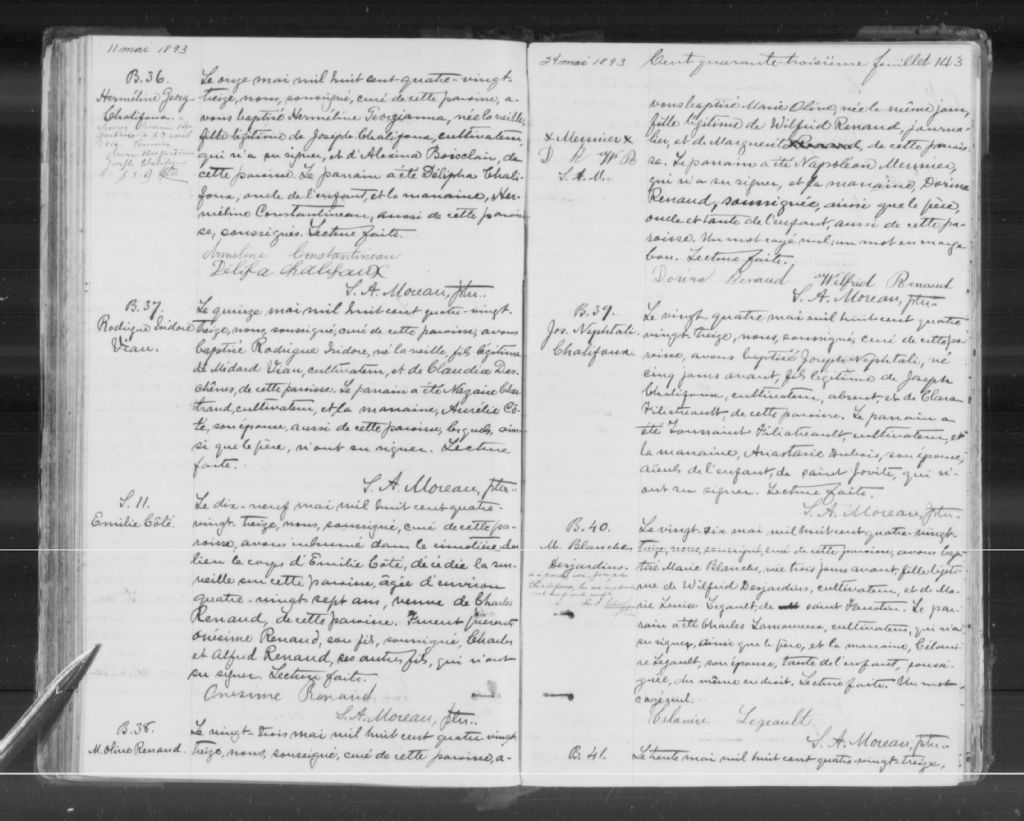 11 mai 1893
B. 36.
Herméline Georg.
Chalifoux.
Le onze mai mil huit cent quatre-vingt-
treize, nous, soussigné, curé de cette paroisse, a-
vons baptisé Herméline Georgianna, née la veille,
fille légitime de Joseph Chalifoux, cultivateur,
qui n'a su signer, et d'Alexina Boisclair, de
cette paroisse. Le parrain a été Délipha Chali-
foux, oncle de l'enfant, et la marraine, Her-
méline Constantineau, aussi de cette parois-
se, soussignés. Lecture faite.
Armeline Constantineau
Délifa Chalifoux
S. A. Moreau, ptre.
B. 37.
Rodrigue Isidore
Vian.
Le quinze mai mil huit cent quatre-vingt-
treize, nous, soussigné, curé de cette paroisse, avons
baptisé Rodrigue Isidore, né la veille, fils légitime
de Médard Vian, cultivateur, et de Claudia Des-
chênes, de cette paroisse. Le parrain a été Nazaire Char-
trand, cultivateur, et la marraine, Aurélie Cô-
té, son épouse, aussi de cette paroisse, lesquels, ain-
si que le père, n'ont su signer. Lecture
faite.
S. A. Moreau, ptre.
S. 11.
Emilie Côté.
Le dix-neuf mai mil huit cent quatre-
vingt-treize, nous, soussigné, curé de cette pa-
roisse, avons inhumé dans le cimetière du
lieu le corps d'Emilie Côté, décédée la sur-
veille sur cette paroisse, âgée d'environ
quatre-vingt sept ans, veuve de Charles
Renaud, de cette paroisse. Furent présents
Onésime Renaud, son fils, soussigné, Charles
et Alfred Renaud, ses autres fils, qui n'ont
su signer. Lecture faite.
Onesime Renaud
S. A. Moreau, ptre.
B. 38.
M. Olive Renaud.
Le vingt-trois mai mil huit cent quatre-vingt-
treize, nous, soussigné, curé de cette paroisse, a-
24 mai 1893 Cent quarante-troisième feuillet 143
vons baptisé Marie Olive, née le même jour,
fille légitime de Wilfrid Renaud, journa-
lier, et de Marguerite Renaud, de cette parois-
se. Le parrain a été Napoléon Meunier,
qui n'a su signer, et la marraine, Dorina
Renaud, soussignée, ainsi que le père,
oncle et tante de l'enfant, aussi de cette pa-
roisse. Un mot rayé nul; un mot en marge
bon. Lecture faite.
x Meunier x
D R W R
S. A. M.
Dorina Renaud Wilfrid Renaud
S. A. Moreau, ptre.
B. 39.
Jos. Nephtali
Chalifoux
Le vingt-quatre mai mil huit cent quatre
vingt-treize, nous, soussigné, curé de cette pa-
roisse, avons baptisé Joseph Nephtali, né
cinq jours avant, fils légitime de Joseph
Chalifoux, cultivateur, absent, et de Clara
Filiatreault, de cette paroisse. Le parrain a
été Toussaint Filiatreault, cultivateur, et
la marraine, Anastasie Dubois, son épouse,
aïeuls de l'enfant, de saint Jovite, qui n'-
ont su signer. Lecture faite.
S. A. Moreau, ptre.
B. 40.
M. Blanche
Desjardins.
Le vingt-six mai mil huit cent quatre-vingt-
treize, nous, soussigné, curé de cette paroisse, avons bap-
tisé Marie Blanche, née trois jours avant, fille légiti-
me de Wilfrid Desjardins, cultivateur, et de Ma-
rie Louise Legault, de saint Faustin. Le par-
rain a été Charles Lamoureux, cultivateur, qui n'a
su signer, ainsi que le père, et la marraine, Célani-
re Legault, son épouse, tante de l'enfant, soussi-
gnée, du même endroit. Lecture faite. Un mot
rayé nul.
Celanire Legeault
S. A. Moreau, ptre.
B. 41.
Le trente mai mil huit cent quatre-vingt-treize,